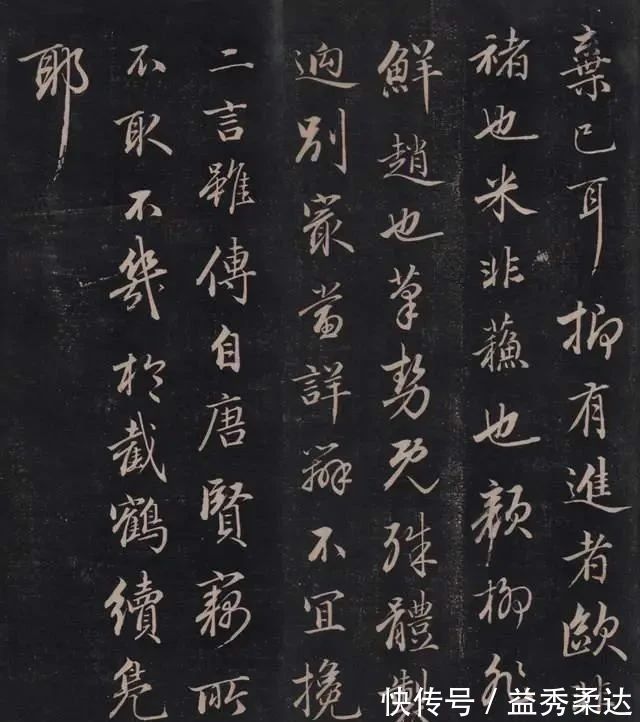 棄已耳抑有進者歐非
褚也米非蘓也顏柳非
鮮趙也筆勢既殊體製
迥別最當詳辨不宜攙
二言雖傳自唐賢竊所
不取不幾於截鶴續鳧
耶
快传号/益秀柔达